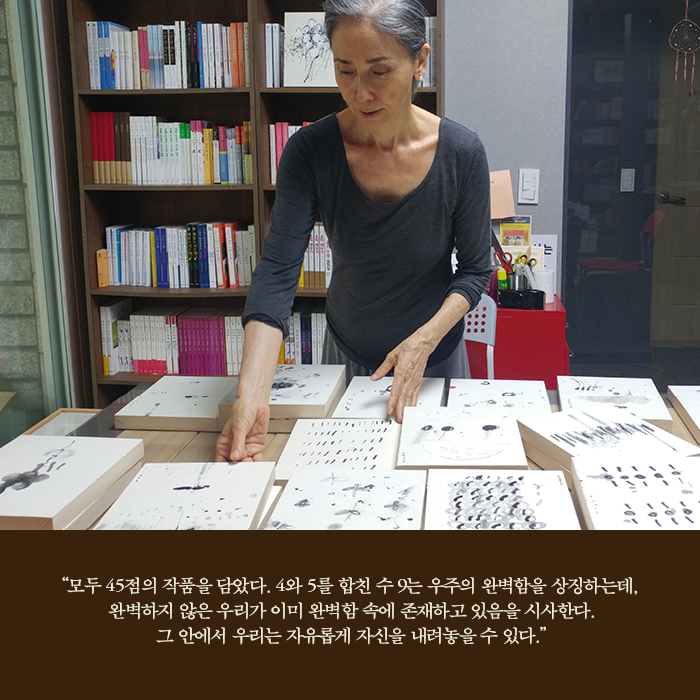 “모두 45점의 작품을 담았다. 4와 5를 합친 수 9는 우주의 완벽함을 상징하는데,
완벽하지 않은 우리가 이미 완벽함 속에 존재하고 있음을 시사한다.
그 안에서 우리는 자유롭게 자신을 내려놓을 수 있다.”